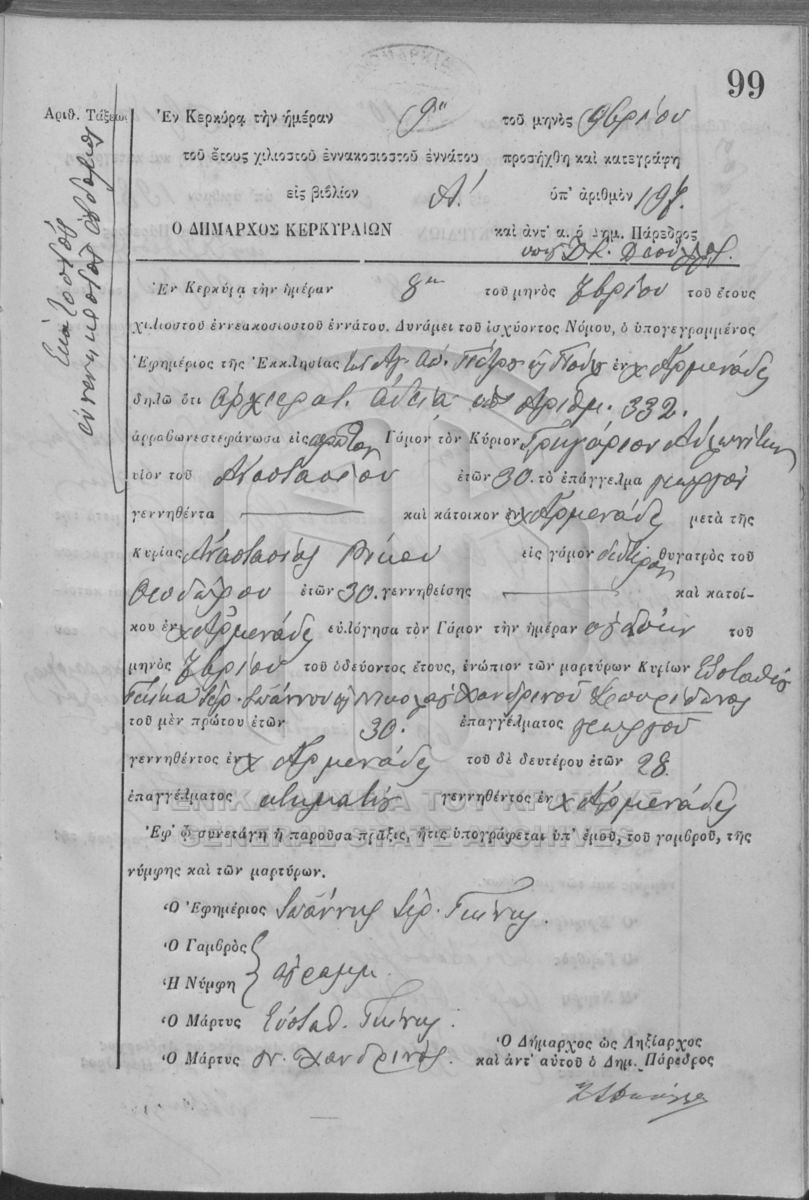 99
Ἀριθ. Τάξεως
Ἑκατοστὸς
ἐννενηκοστὸς ἕβδομος
Ἐν Κερκύρᾳ τὴν ἡμέραν 9η τοῦ μηνὸς 9βρίου
τοῦ ἔτους χιλιοστοῦ ἐννακοσιοστοῦ ἐννάτου προσήχθη καὶ κατεγράφη
εἰς βιβλίον Α! ὑπ' ἀριθμὸν 197.
Ὁ ΔΗΜΑΡΧΟΣ ΚΕΡΚΥΡΑΙΩΝ καὶ ἀντ' α. ὁ Δημ. Πάρεδρος
Ἐν Κερκύρᾳ τὴν ἡμέραν 8ην τοῦ μηνὸς 7βρίου τοῦ ἔτους
χιλιοστοῦ ἐννεακοσιοστοῦ ἐννάτου. Δυνάμει τοῦ ἰσχύοντος Νόμου, ὁ ὑπογεγραμμένος
Ἐφημέριος τῆς Ἐκκλησίας τῶν Ἁγ. Ἀπ. Πέτρου καὶ Παύλου ἐν χ Ἀρμενάδες
δηλῶ ὅτι ἀρχιερατ. ἀδείᾳ ὑπ' ἀριθμ. 332.
ἀρραβωνεστεφάνωσα εἰς πρῶτον Γάμον τὸν Κύριον Γρηγόριον Αὐλωνίτην
υἱὸν τοῦ Ἀναστασίου ἐτῶν 30. τὸ ἐπάγγελμα γεωργὸν
γεννηθέντα καὶ κάτοικον ἐν χ Ἀρμενάδες μετὰ τῆς
Κυρίας Ἀναστασίας εἰς γάμον δεύτερον θυγατρὸς τοῦ
Θεοδώρου ἐτῶν 30. γεννηθείσης καὶ κατοί-
κου ἐν χ Ἀρμενάδες εὐλόγησα τὸν Γάμον τὴν ἡμέραν ὀγδόην τοῦ
μηνὸς 7βρίου τοῦ ὁδεύοντος ἔτους, ἐνώπιον τῶν μαρτύρων Κυρίων Εὐσταθίου
Γκίκα ἱερ. Ἰωάννου καὶ Νικολάου Χανδρινοῦ Σπυρίδωνος
τοῦ μὲν πρώτου ἐτῶν 30. ἐπαγγέλματος γεωργοῦ
γεννηθέντος ἐν χ Ἀρμενάδες τοῦ δὲ δευτέρου ἐτῶν 28
ἐπαγγέλματος κτηματίου γεννηθέντος ἐν χ Ἀρμενάδες
ΓΕΝΙΚΑ ΑΡΧΕΙΑ ΤΟΥ ΚΡΑΤΟΥΣ
Ἐφ' ᾧ συνετάγη ἡ παροῦσα πρᾶξις, ἥτις ὑπογράφεται ὑπ' ἐμοῦ, τοῦ γαμβροῦ, τῆς
GENERAL STATE ARCHIVES
νύμφης καὶ τῶν μαρτύρων.
Ὁ Ἐφημέριος Ἰωάννης ἱερ. Γκίκας.
Ὁ Γαμβρὸς
Ἡ Νύμφη ἀγράμμ.
Ὁ Μάρτυς Εὐσταθ. Γκίκας.
Ὁ Μάρτυς Ν. Χανδρινός.
Ὁ Δήμαρχος ὡς Ληξίαρχος
καὶ ἀντ' αὐτοῦ ὁ Δημ. Πάρεδρος